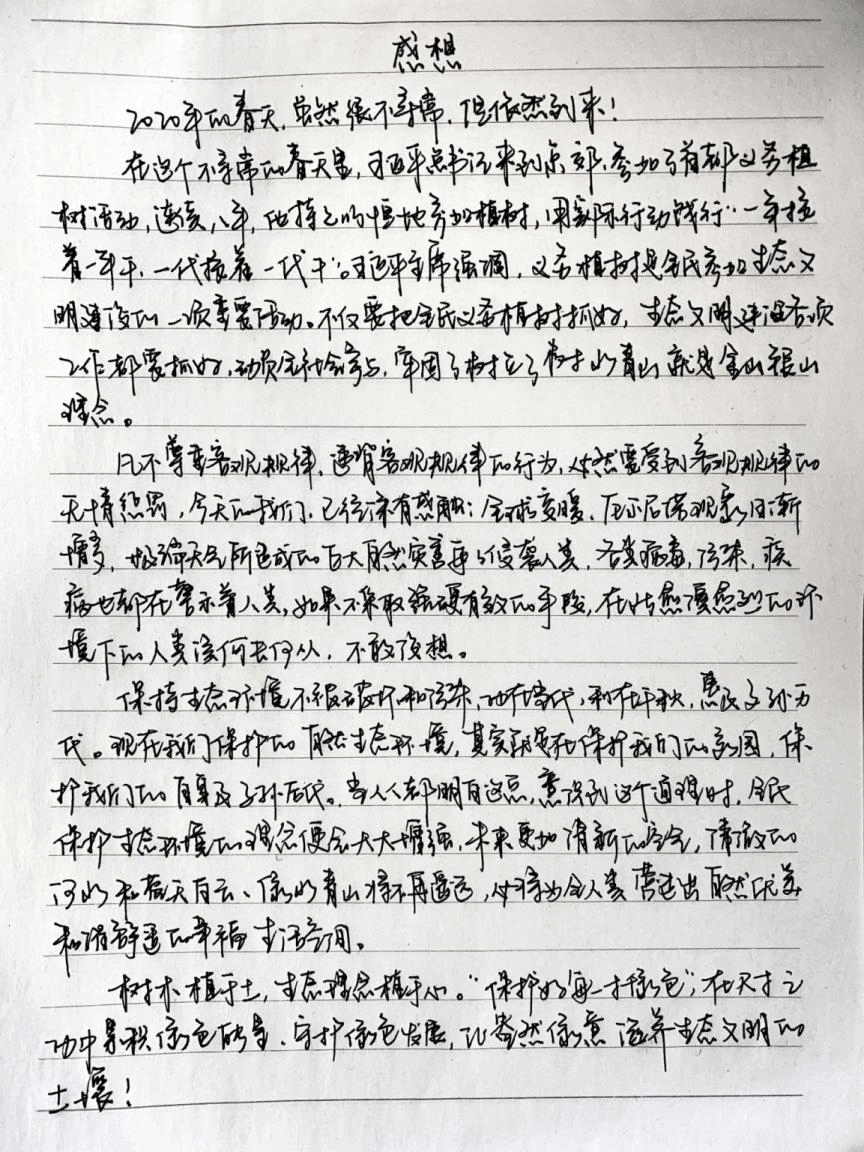 感想
2020年的春天，虽然很不寻常，但依然到来！
在这个不寻常的春天里，习近平总书记来到京郊，参加了首都义务植
树活动，连续八年，他持之以恒地参加植树，用实际行动践行“一年接
着一年干，一代接着一代干”。习近平主席强调，义务植树是全民参加生态文
明建设的一项重要活动。不仅要把全民义务植树抓好，生态文明建设各项
工作都要抓好，动员全社会参与，牢固了树立了绿水青山就是金山银山
理念。
凡不尊重客观规律，违背客观规律的行为，必然需受到客观规律的
无情惩罚，今天的我们，已经深有感触：全球变暖、厄尔尼诺现象日渐
增多，极端天气所造成的巨大自然灾害再次侵袭人类，各类病毒，污染，疾
病也都在警示着人类，如果不采取强硬有效的手段，在此愈演愈烈的环
境下的人类该何去何从，不敢设想。
保持生态环境不被破坏和污染，功在当代，利在千秋，惠及子孙万
代。现在我们保护的自然生态环境，其实就是在保护我们的家园，保
护我们的自身及子孙后代。当人人都明白这点，意识到这个道理时，全民
保护生态环境的理念便会大大增强，未来更加清新的空气，清澈的
河水和蓝天白云、绿水青山将不再遥远，必将为全人类营造出自然优美
和谐舒适的幸福生活空间。
树木植于土，生态理念植于心。“保护好每一寸绿色”，在尺寸之
功中累积绿色能量、守护绿色发展，以盎然绿意滋养生态文明的
土壤！